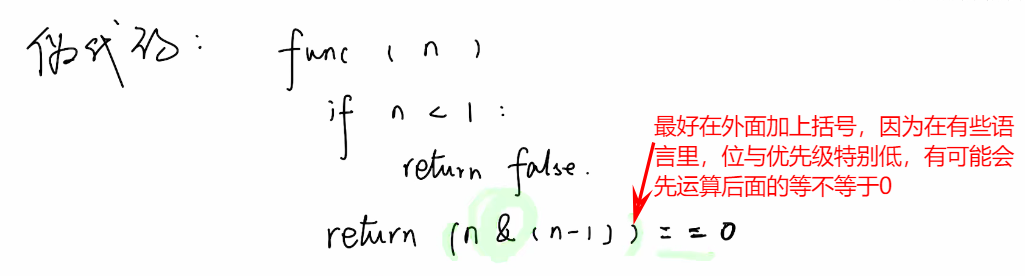 伪代码: func (n)
if n < 1 :
return false.
return (n & (n-1)) == 0
最好在外面加上括号，因为在有些语
言里，位与优先级特别低，有可能会
先运算后面的等不等于0